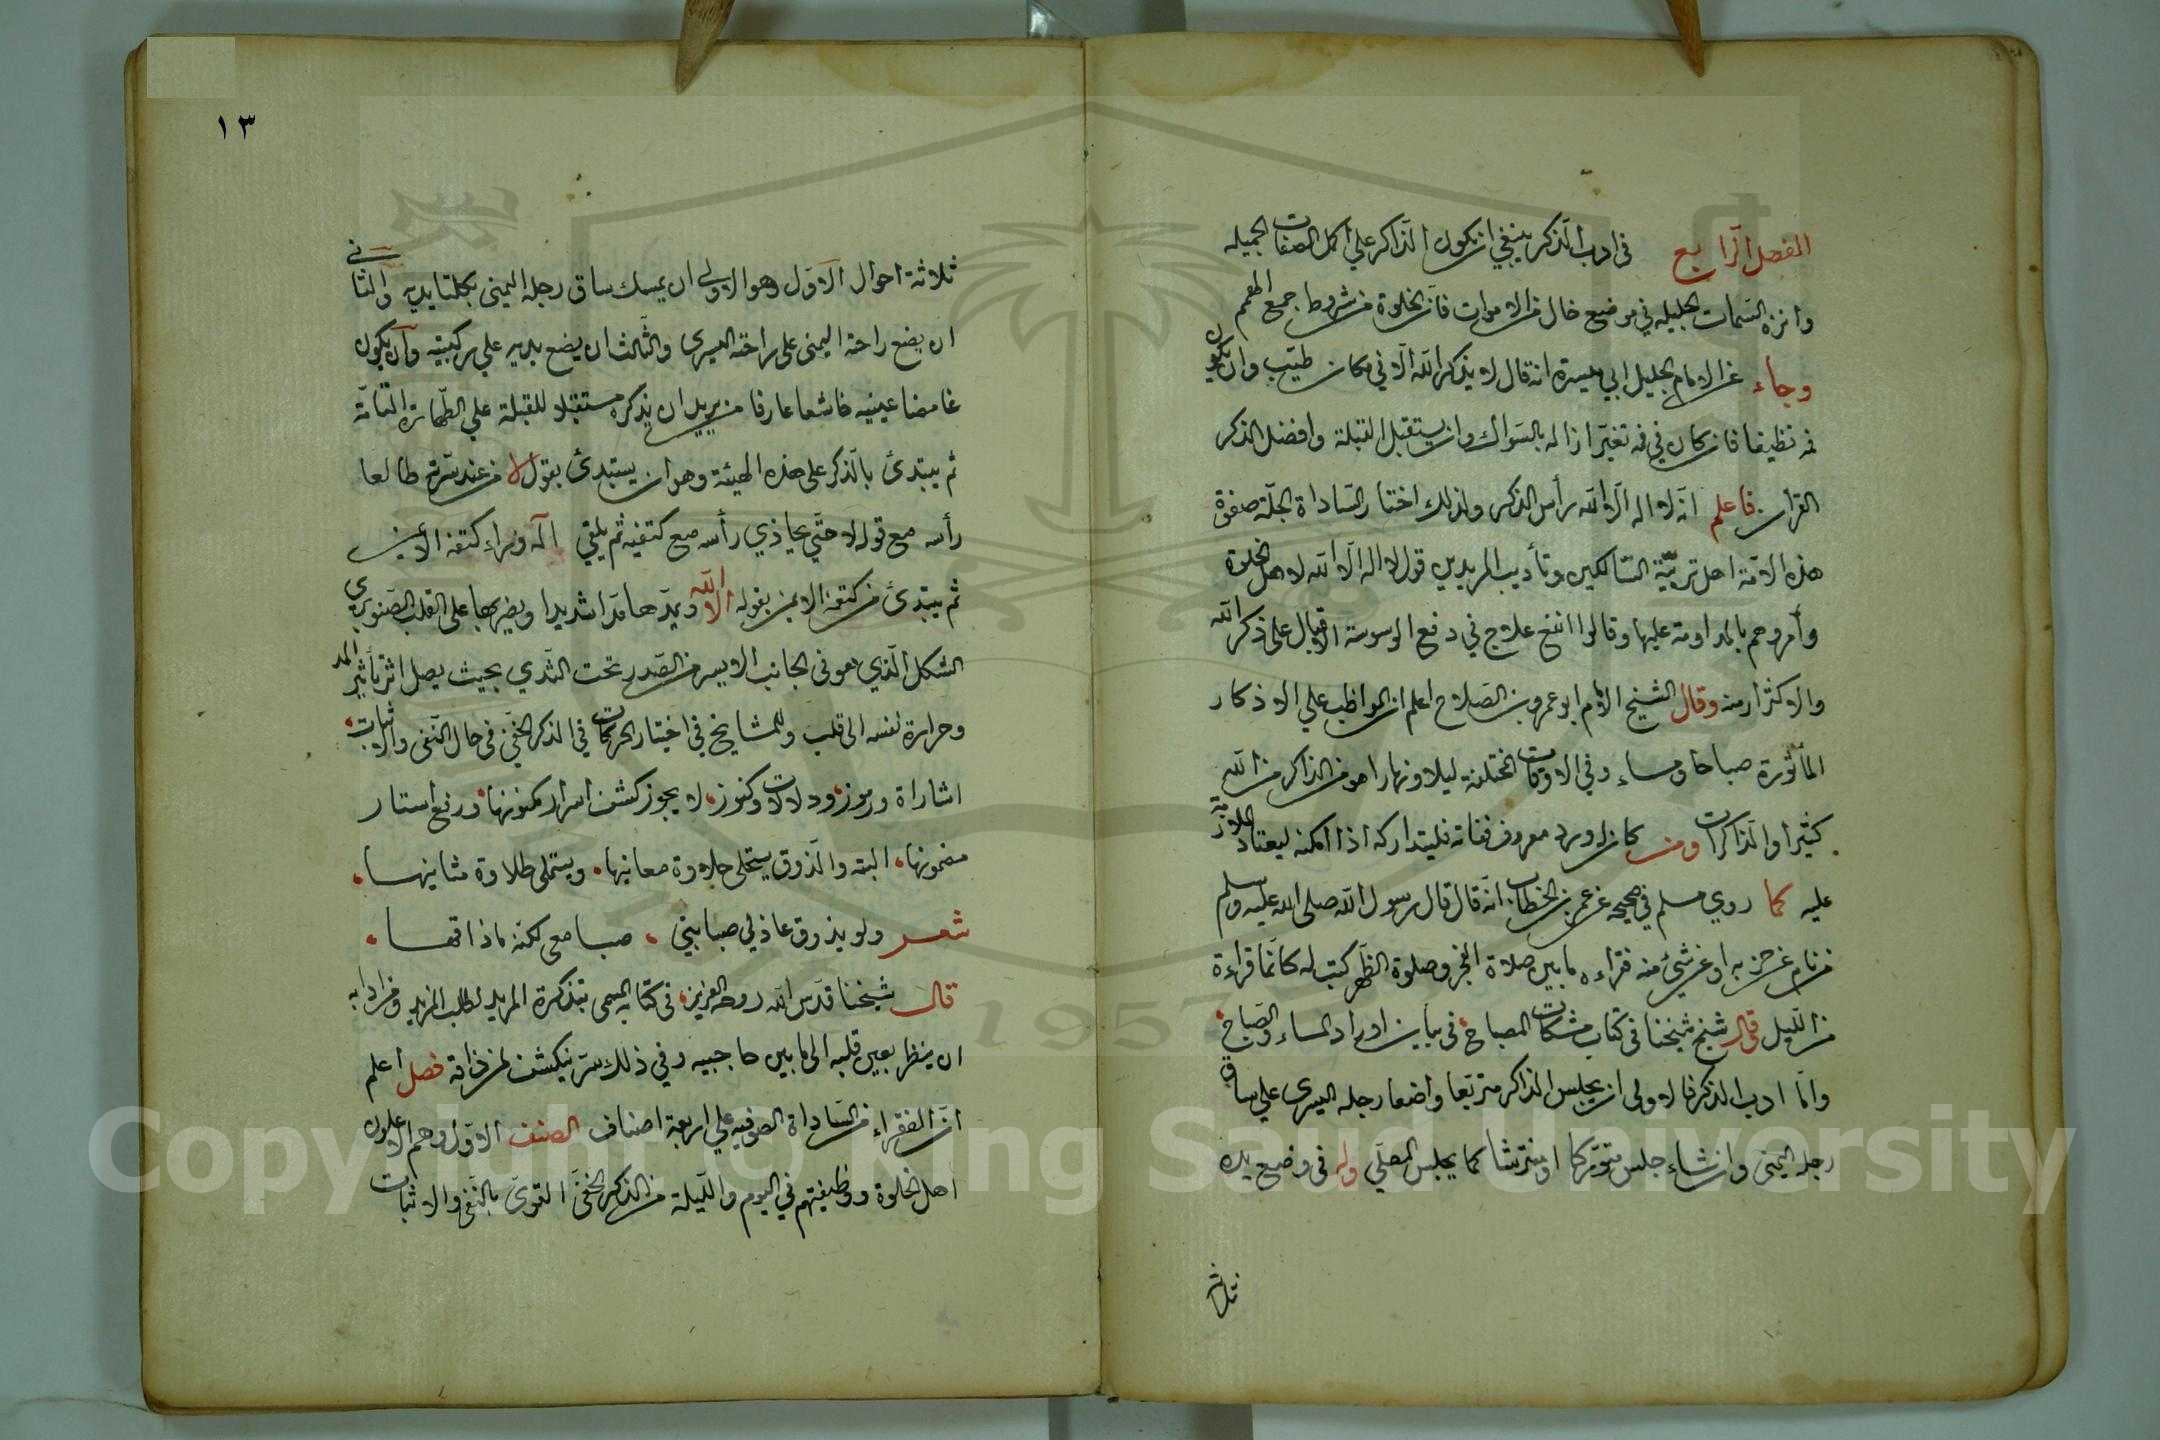 الفصل الرابع في ادب الذكر ينبغي ان يكون الذاكر علي اكمل الصفات الجميله
وانزه السمات الجليله في موضع خال من الاموات فان الخلوة من شروط جمع الهمم
وجاء عن الامام الجليل ابي ميسرة انه قال لا يذكر الله الا في مكان طيب وان يكون
فمه نظيفا فان كان في فمه تغير ازاله بالسواك وان يستقبل القبلة وافضل الذكر
القران فاعلم انه لا اله الا الله رأس الذكر ولذلك اختار الساداة الجلة صفوة
هذه الامة اهل تربية السالكين وتأديب المريدين قول لا اله الا الله لاهل الخلوة
وأمروهم بالمداومة عليها وقالوا انفع علاج في دفع الوسوسة الاقبال على ذكر الله
والاكثار منه وقال الشيخ الامام ابو عمرو بن الصلاح اعلم ان المواظب علي الاذكار
المأثورة صباحا ومساء وفي الاوقات المختلفة ليلا ونهارا هو من الذاكرين الله
كثيرا والذاكرات ومن كان له ورد معروف ففاته فليتداركه اذا امكنه ليعتاد الملازمة
عليه كما روي مسلم في صحيحه عن عمر بن الخطاب انه قال قال رسول الله صلى الله عليه وسلم
من نام عن حزبه او عن شيء منه فقراءه ما بين صلاة الفجر وصلوة الظهر كتب له كانما قراءة
من الليل قال شيخ شيخنا في كتاب مشكات المصباح في بيان اوراد المساء والصباح
واما ادب الذكر فالاولى ان يجلس الذاكر متربعا واضعا رجله اليسرى علي ساق
رجله اليمنى وان شاء جلس متوركا او مفترشا كما يجلس المصلي وله في وضع يده
ثلاثة
١٣
ثلاثة احوال الاول وهو الاولى ان يمسك ساق رجله اليمنى بكلتا يديه والثاني
ان يضع راحة اليمنى على راحة اليسرى والثالث ان يضع يديه علي ركبتيه وان يكون
غامضا عينيه خاشعا عارفا من يريد ان يذكره مستقبلا للقبلة علي الطهارة التامة
ثم يبتدئ بالذكر على هذه الهيئة وهو ان يبتدئ بقول لا من عند سرته طالعا
رأسه مع قوله لا حتى يحاذي رأسه مع كتفيه ثم يلقي اله وراء كتفه الايمن
ثم يبتدئ من كتفه الايمن بقوله الا الله ويمدها مدا شديدا ويضربها على القلب الصنوبري
الشكل الذي هو في الجانب الايسر من الصدر تحت الثدي بحيث يصل اثر تأثير المد
وحرارة نفسه الى قلبه وللمشايخ في اختيار الحركات في الذكر الخفي في حال النفي والاثبات
اشاراة ورموز ودلالات وكنوز لا يجوز كشف اسرار مكنونها ورفع استار
مضمونها البته والذوق يستحلى حلاوة معانيها ويستملى طلاوة مثانيها
شعر ولو يذوق عاذلي صبابتي صبا معي لكنه ماذاقها
قال شيخنا قدس الله روحه العزيز في كتابه المسمى بتذكرة المريد لطلب المزيد ومن ادابه
ان ينظر بعين قلبه الى ما بين حاجبيه وفي ذلك سر ينكشف لمن ذاقه فصل اعلم
ان الفقراء من الساداة الصوفيه علي اربعة اصناف الصنف الاول وهم الاعلون
اهل الخلوة ووظيفتهم في اليوم والليلة من الذكر الخفي القوي بالنفي والاثبات
Copyright © King Saud University
1957